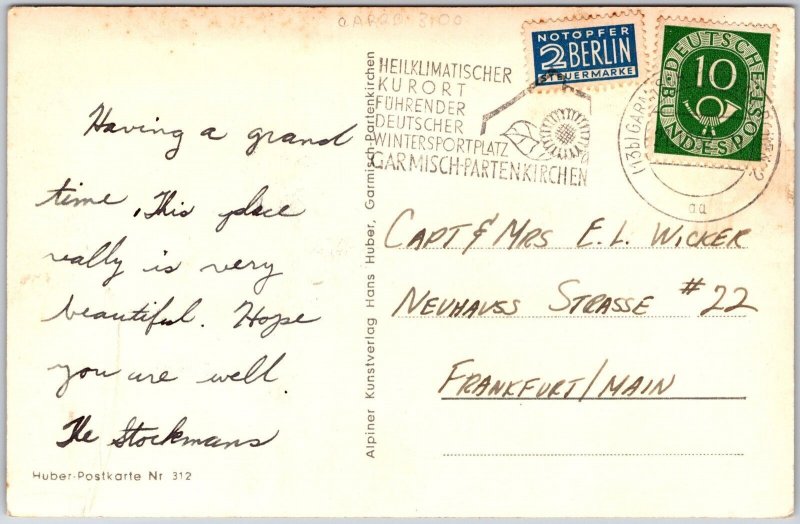 Having a grand
time, This place
really is very
beautiful. Hope
you are well.
The Stockmans
Huber-Postkarte Nr. 312
Alpiner Kunstverlag Hans Huber, Garmisch-Partenkirchen
HEILKLIMATISCHER
KURORT
FÜHRENDER
DEUTSCHER
WINTERSPORTPLATZ
GARMISCH-PARTENKIRCHEN
NOTOPFER
2 BERLIN
STEUERMARKE
DEUTSCHE
BUNDESPOST
10
(13b) GARM
aa
CAPT & MRS E. L. WICKER
NEUHAUSS STRASSE #22
FRANKFURT/MAIN